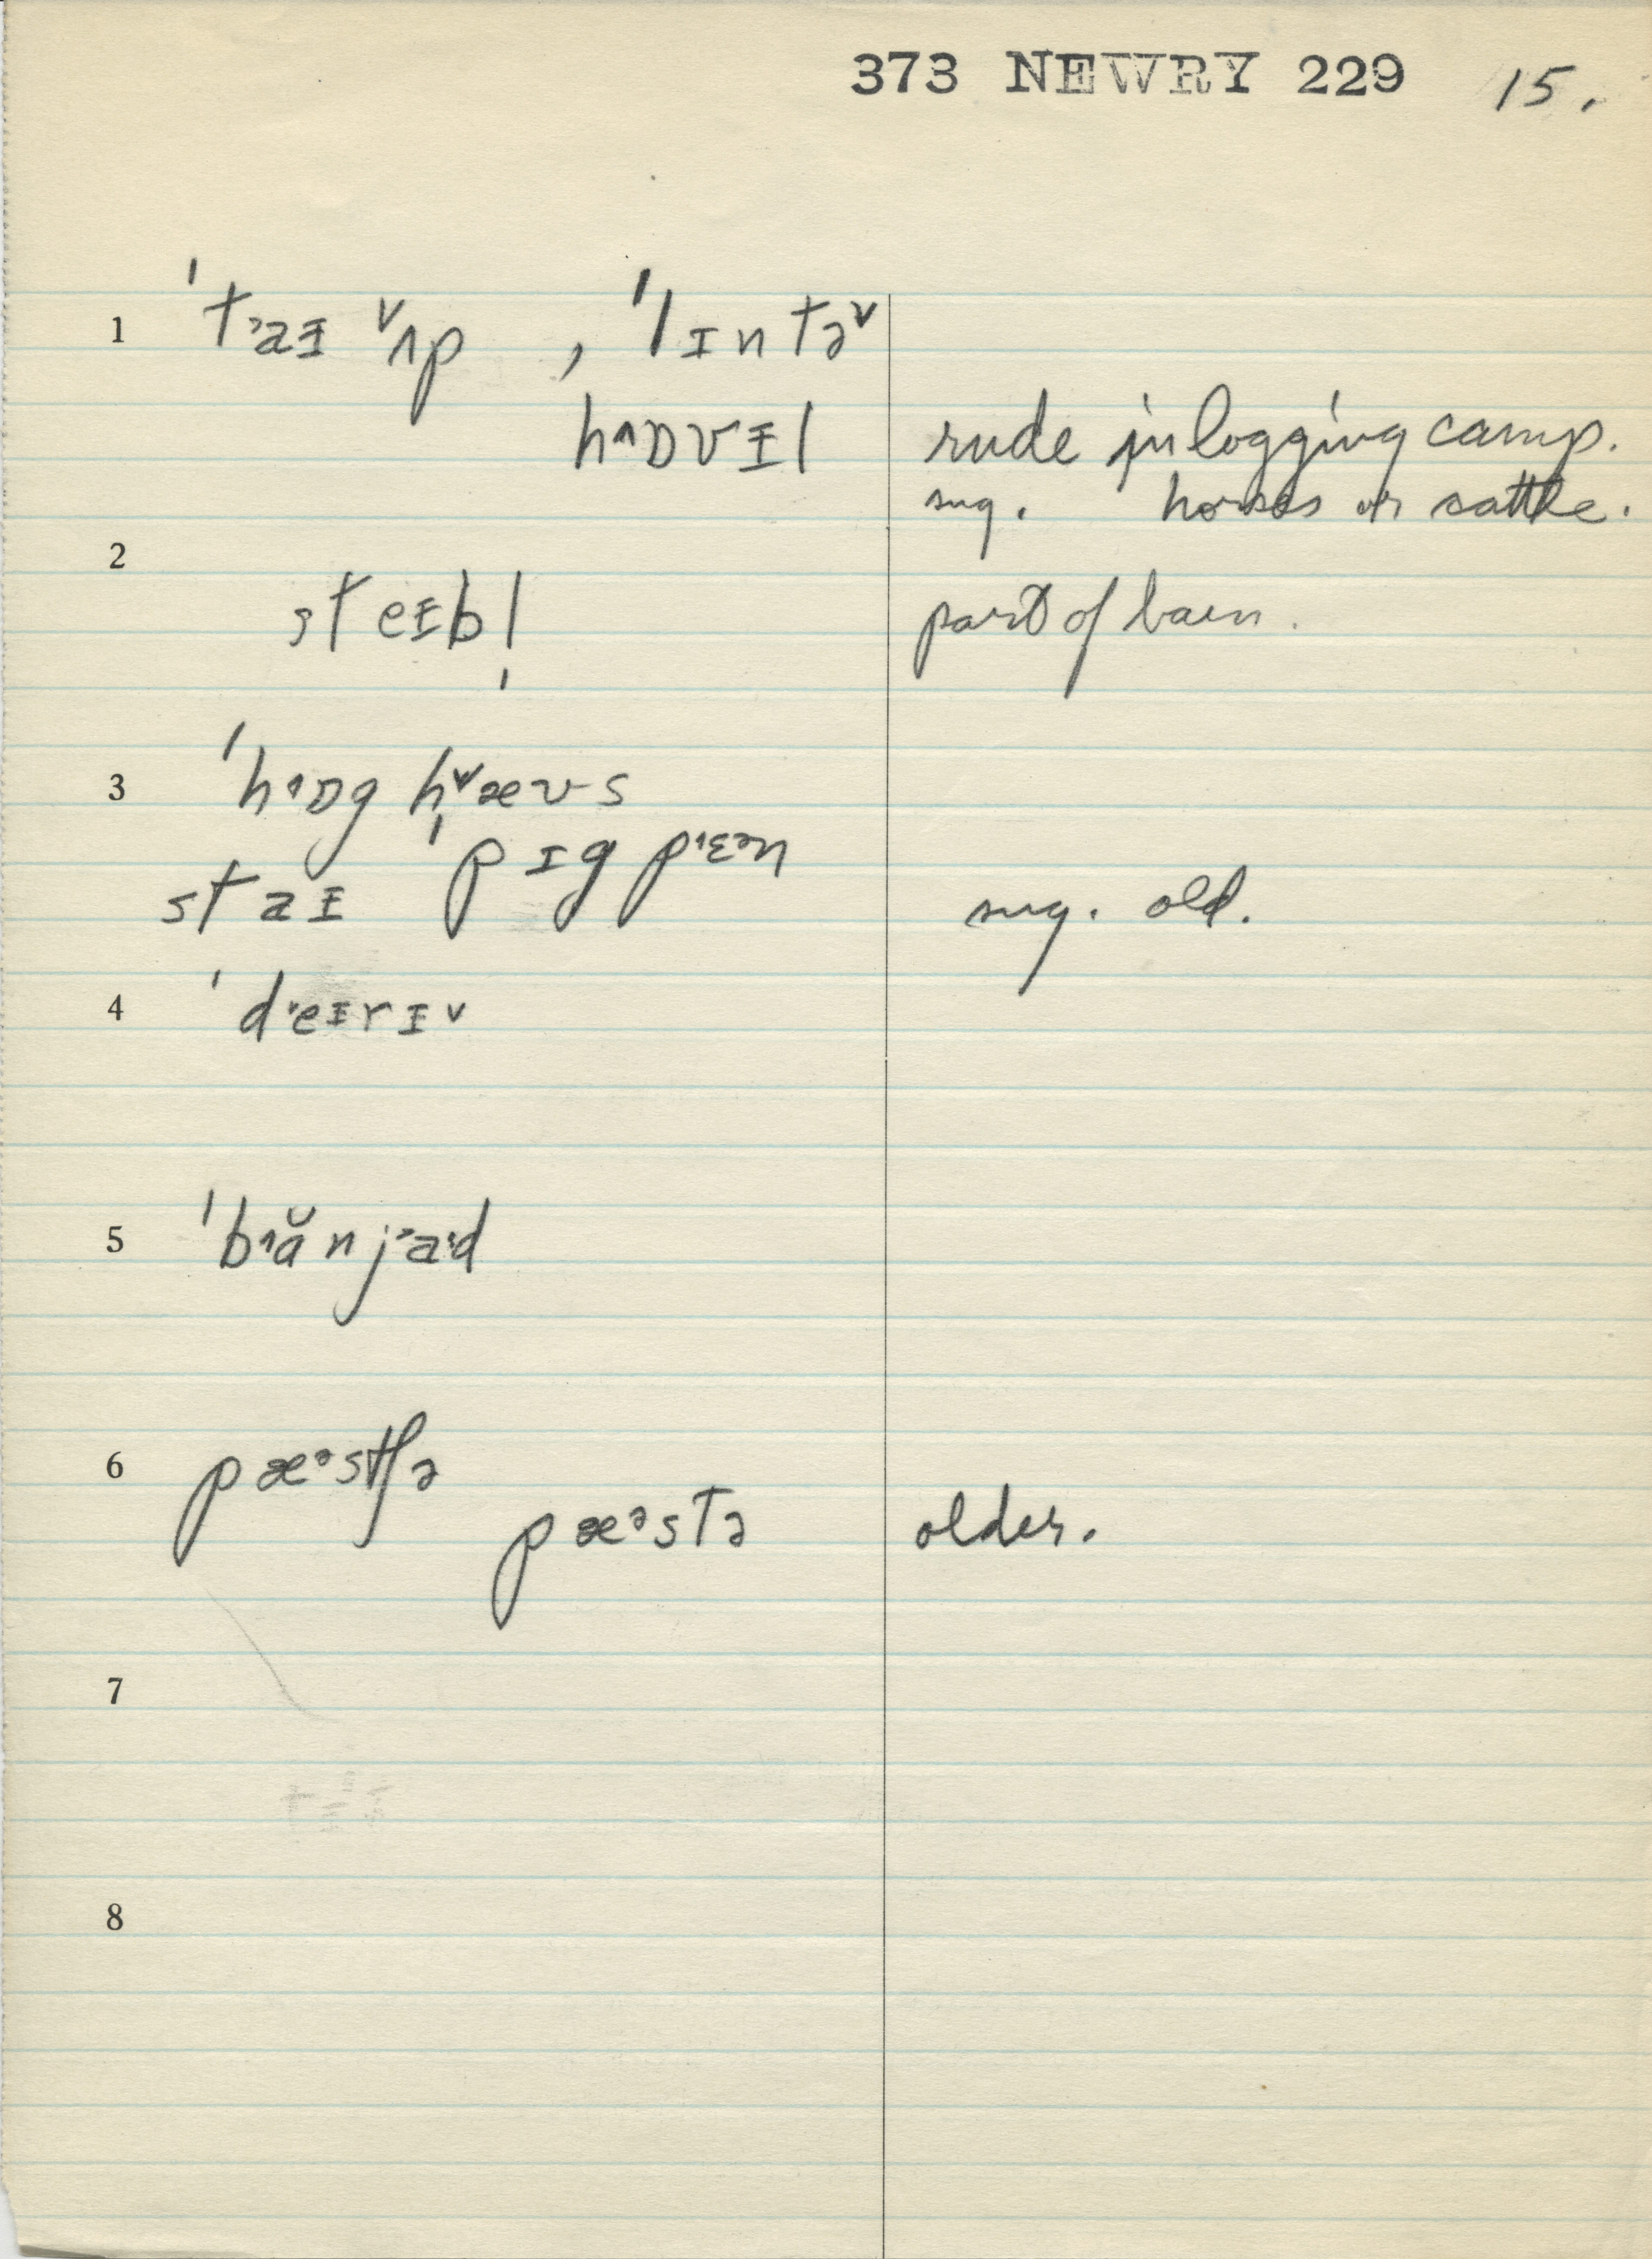 373 NEWRY 229 15.
1 ˈt˃aᵻ ˅ʌp , ˈlɪntə˅
h˄ɒvᵻl rude in logging camp.
sug. horses or cattle.
2
steᵻbl̩ part of barn.
3 ˈh˄ɒg h˅æʊs
ˈpɪg p˄ɛᵊn
staᵻ sug. old.
4 ˈd˅eᵻrᵻ˅
5 ˈb˄ănj˃aˑd
6 pæᵊstʃə
pæᵊstə older.
7
8